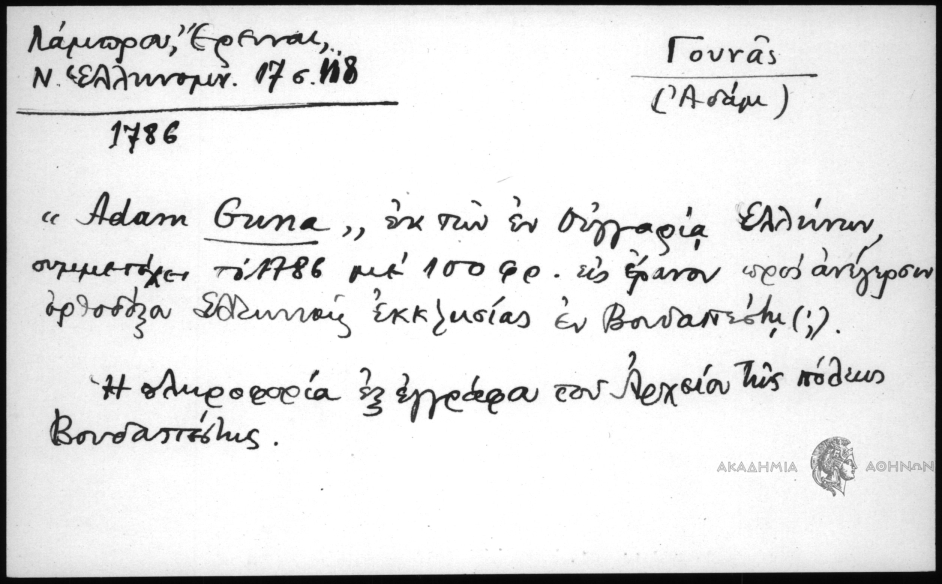 Λάμπρου, Ἔρευναι,
Ν. Ἑλληνομν. 17 σ. 118
1786
Γουνᾶς
(Ἀδάμ)
« Adam Guna », ἐκ τῶν ἐν Οὑγγαρίᾳ Ἑλλήνων,
συμμετέχει τὸ 1786 μὲ 100 φρ. εἰς ἔρανον πρὸς ἀνέγερσιν
ὀρθοδόξου Ἑλληνικῆς ἐκκλησίας ἐν Βουδαπέστῃ (;).
Ἡ πληροφορία ἐξ ἐγγράφου τοῦ Ἀρχείου τῆς πόλεως
Βουδαπέστης.
ΑΚΑΔΗΜΙΑ ΑΘΗΝΩΝ